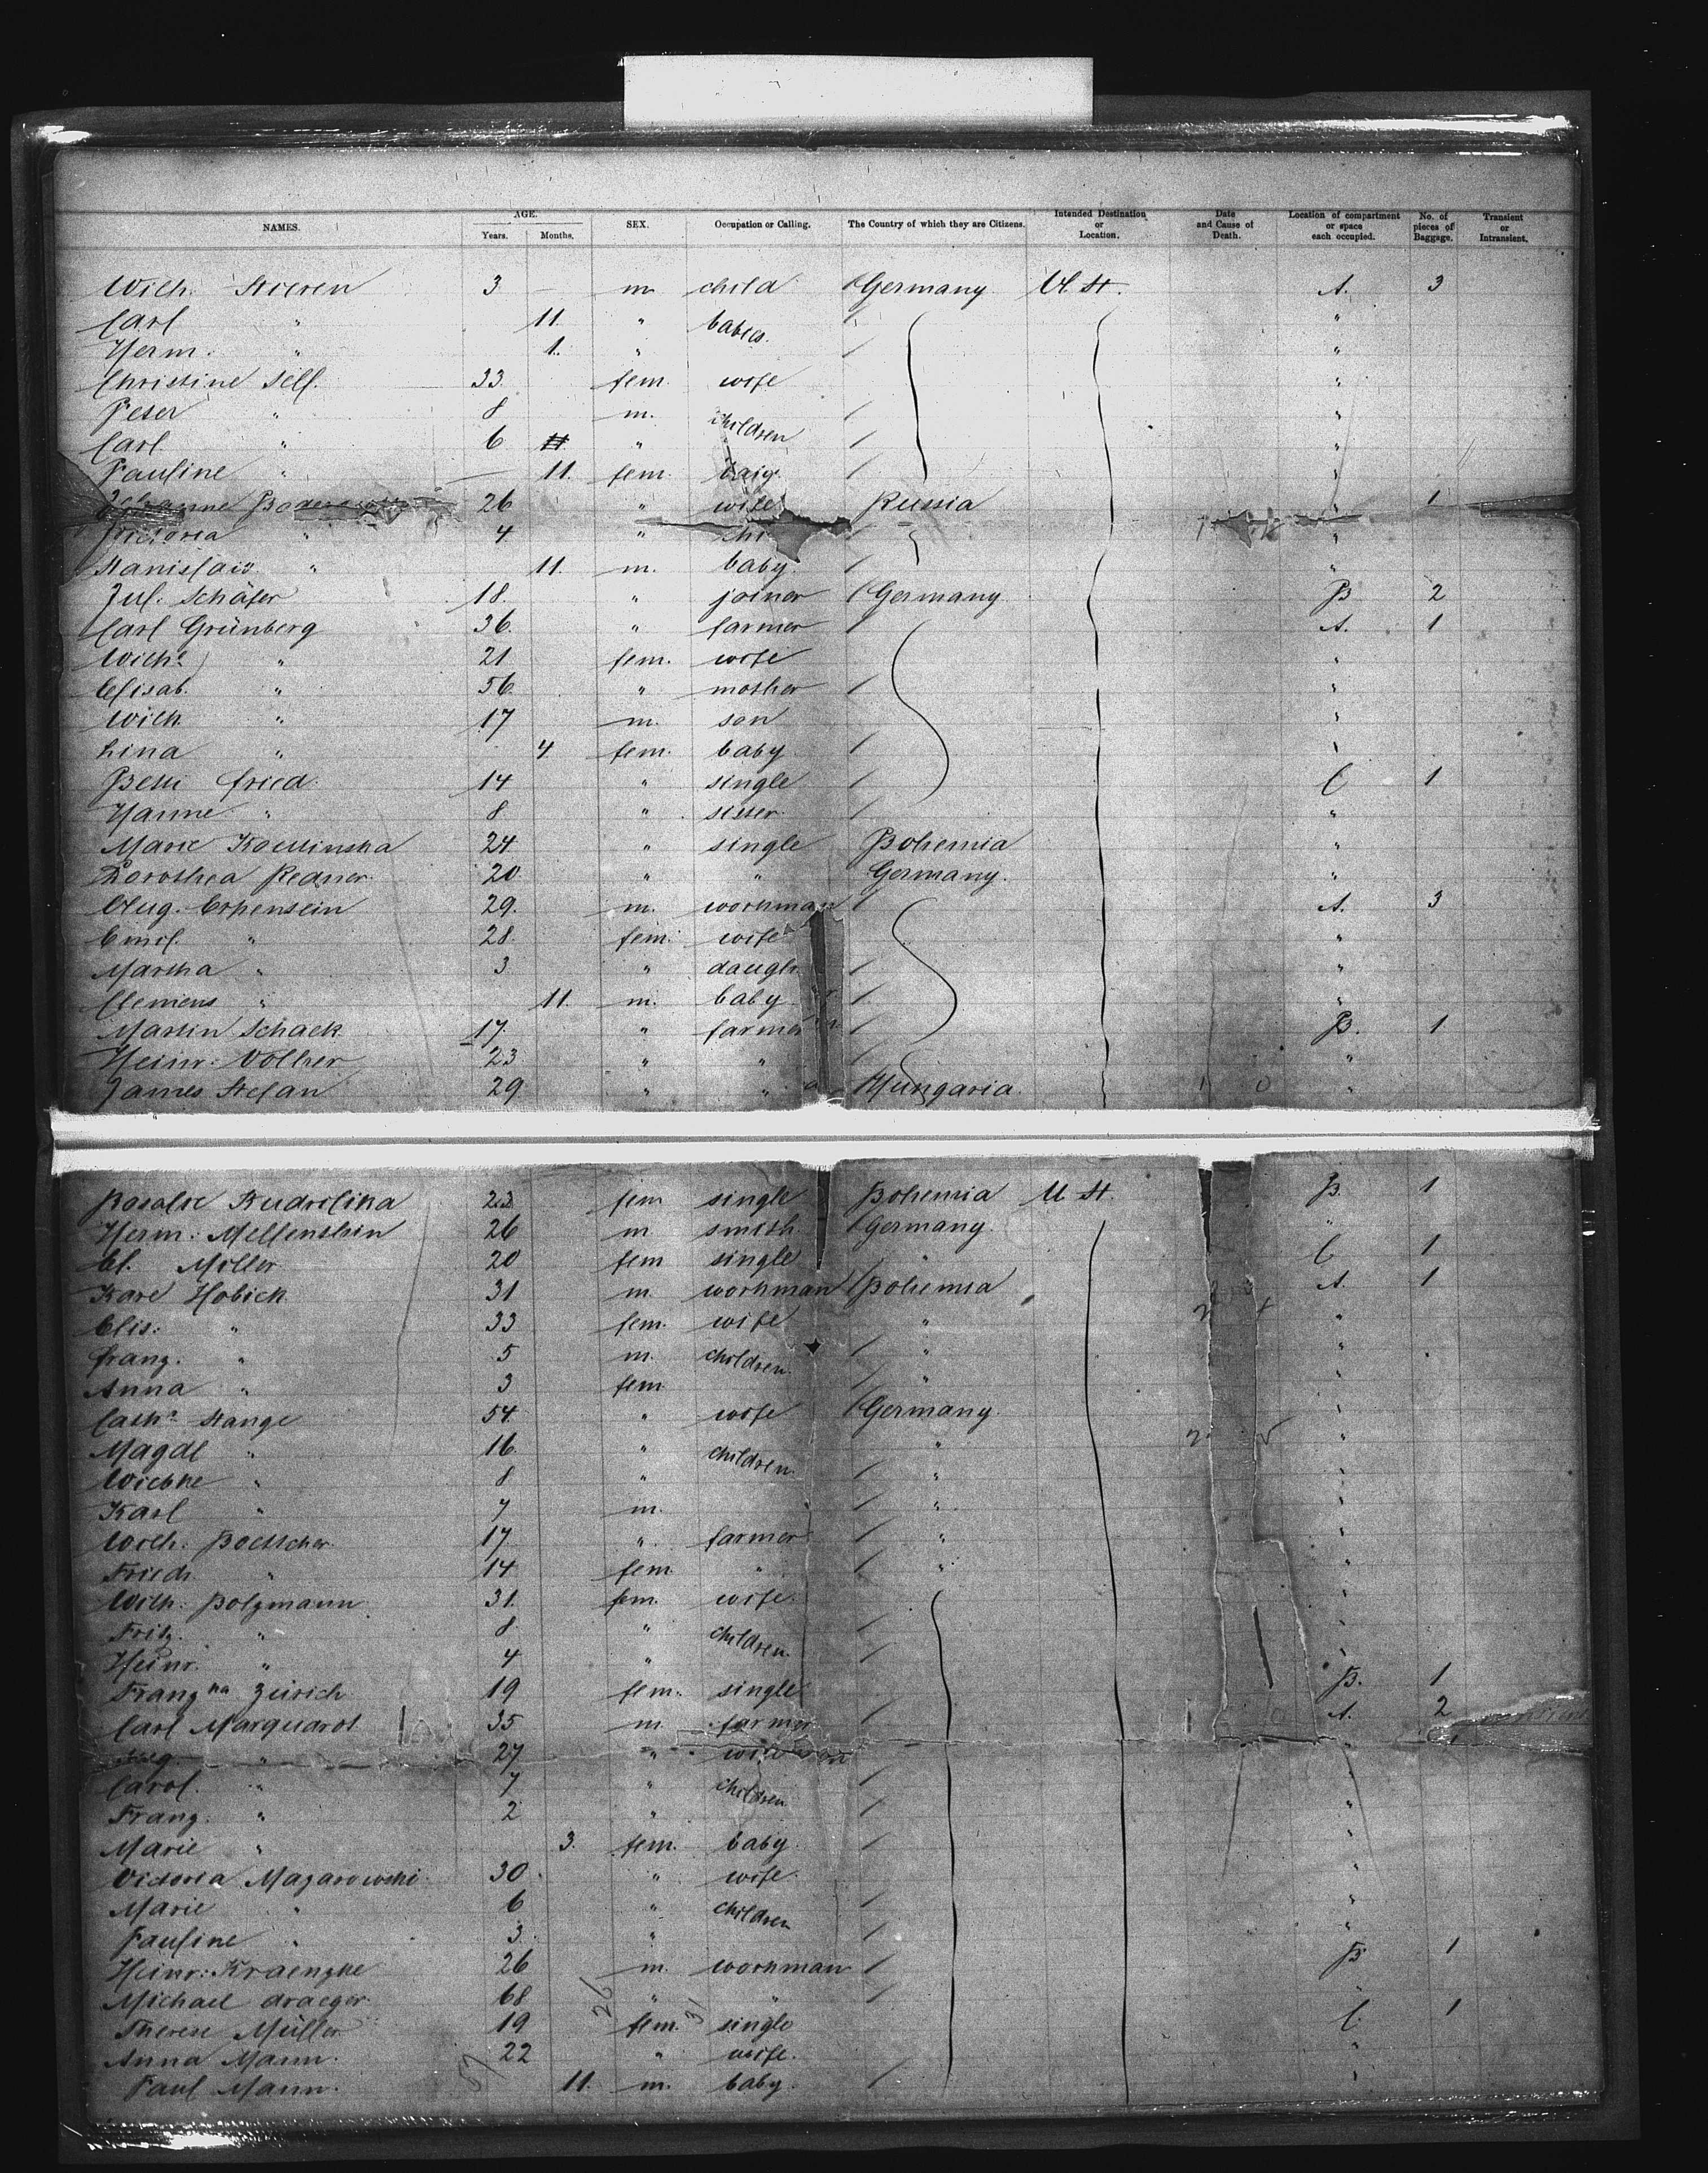 NAMES. AGE. Years. Months. SEX. Occupation or Calling. The Country of which they are Citizens. Intended Destination or Location. Date and Cause of Death. Location of compartment or space each occupied. No. of pieces of Baggage. Transient or Intransient.
Wilh. Stieren 3 — m child Germany U. St. A. 3
Carl " 11. " babies. "
Herm. " 1. " "
Christine Self. 33. fem. wife "
Peter " 8 m. children "
Carl. " 6 11 " "
Pauline " — 11. fem. "
26 " wife Russia " 1
Victoria " 4 " "
Stanislaw " 11. m. baby. "
Jul. Schäfer 18. " joiner Germany B 2
Carl Grünberg 36. " farmer A. 1
Wilhe " 21 fem. wife "
Elisab. " 56. " mother "
Wilh. " 17 m. son "
Lina " 4 fem. baby "
Betti Fried. 14 " single C 1
Hanne " 8 " sister "
Marie 24 " single Bohemia "
Dorothea Redner 20 " " Germany. "
Aug. Erpenstein 29. m. workman A. 3
Emil. " 28. fem. wife "
Martha " 3 " "
Clemens " 11. m. baby "
Martin Schack 17. " farmer B. 1
Heinr. Volker 23 " " "
James Stefan 29 " " Hungaria. "
Rosalie Kudrlicka 23 fem single Bohemia U St. B. 1
Herm. Mellenthin 26 m smith Germany. "
El. Miller 20 fem single " C 1
Karl Hobick 31 m. workman Bohemia A. 1
Elis. " 33 fem. wife " "
Franz. " 5 m. children. " "
Anna " 3 fem " "
Cathe Stange 54. " wife Germany "
Magdl " 16. " children. " "
Wiebke " 8 " " "
Karl " 7 m. " "
Wilh. Boettcher 17 " farmer " "
Friedr. " 14 fem " " "
Wilh. Bolzmann 31. fem. wife. "
Fritz. " 8 " children. "
Heinr. " 4 " "
Franzka Zürich 19 fem. single B. 1
Carl Marquardt 35 m farmer A. 2
" 27 " "
Carol. " 7 " children "
Franz. " 2 " "
Marie " 3. fem. baby "
Victoria Mazarowski 30. " wife. "
Marie " 6 " children "
Pauline " 3. " "
Heinr. Kraengke 26 m. workman B 1
Michael Draeger 68 " "
Therese Müller 19 fem. single C. 1
Anna Mann. 22 " wife. "
Paul Mann. 11. m. baby. "
26
31
57